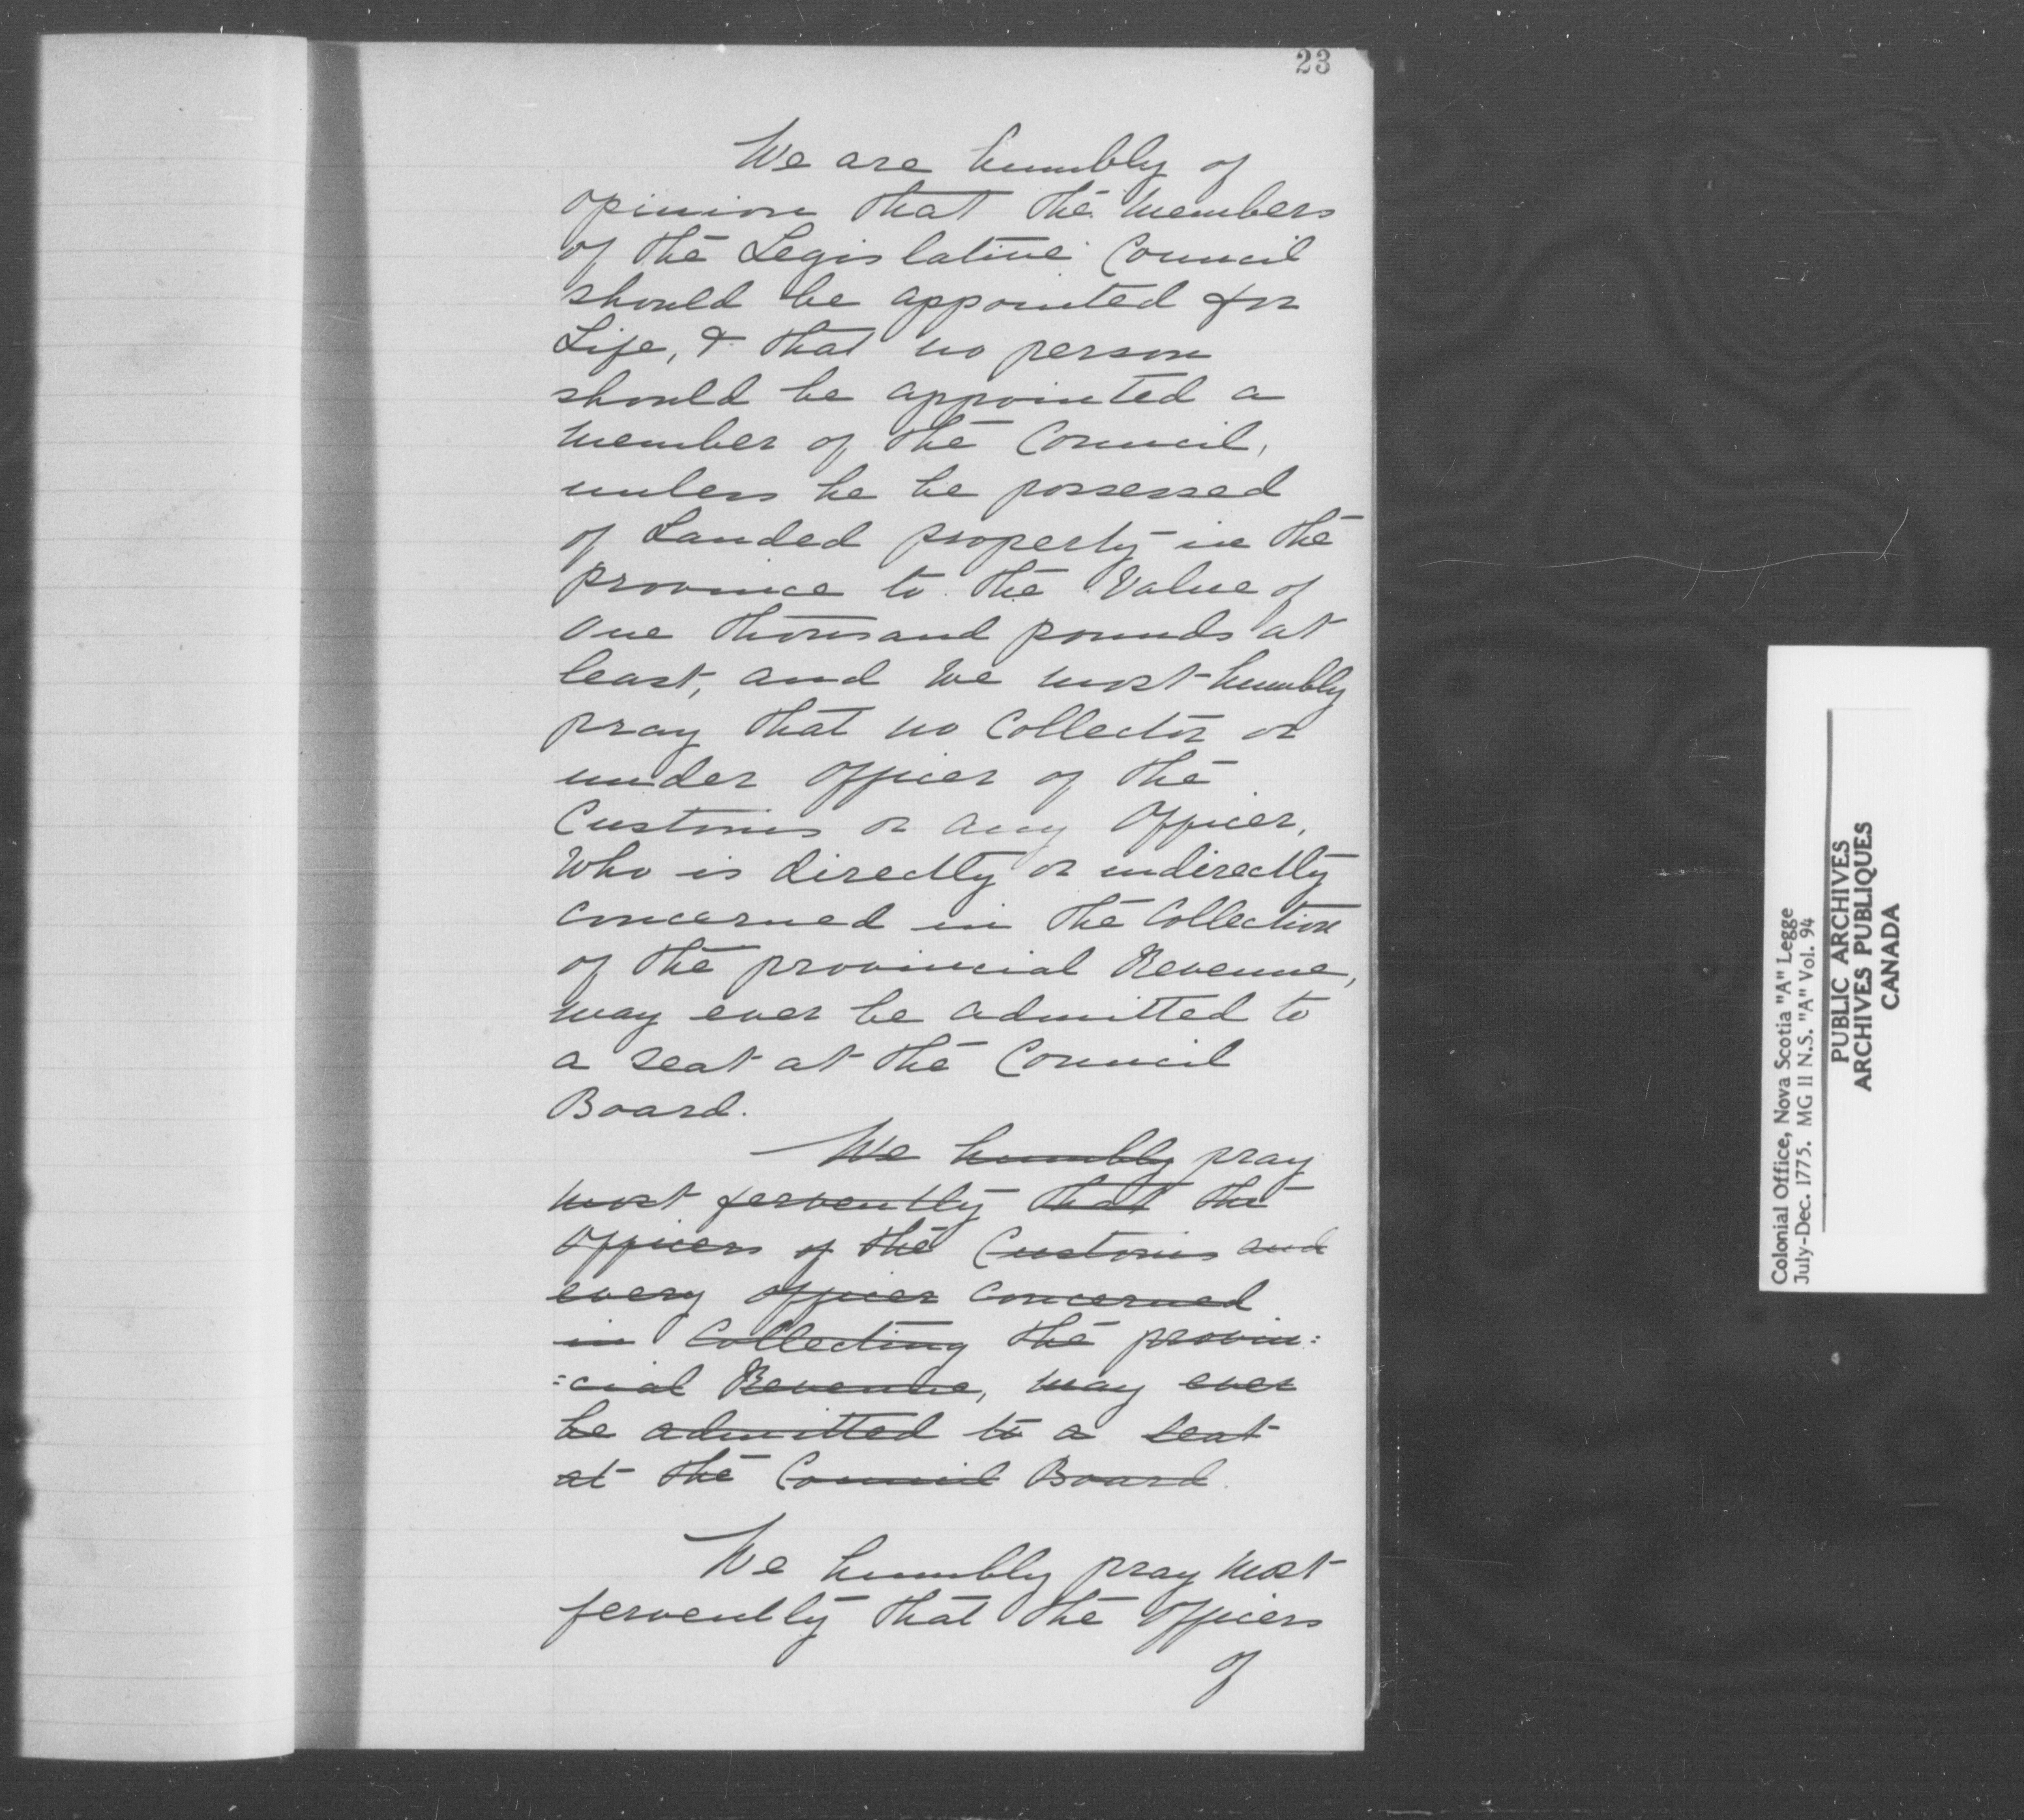 23
We are humbly of
opinion that the members
of the Legislative Council
should be appointed for
Life, & that no person
should be appointed a
member of the Council,
unless he be possessed
of Landed property in the
province to the Value of
One thousand pounds at
least, and we most humbly
pray that no Collector or
under Officer of the
Customs or any Officer,
Who is directly or indirectly
concerned in the Collection
of the provincial Revenue,
may ever be admitted to
a seat at the Council
Board.
We humbly pray
most fervently that the
Officers of the Customs and
every officer concerned
in Collecting the provin:
:cial Revenue, may ever
be admitted to a seat
at the Council Board.
We humbly pray most
fervently that the Officers
of
Colonial Office, Nova Scotia "A" Legge
July-Dec. 1775. MG 11 N.S. "A" Vol. 94
PUBLIC ARCHIVES
ARCHIVES PUBLIQUES
CANADA